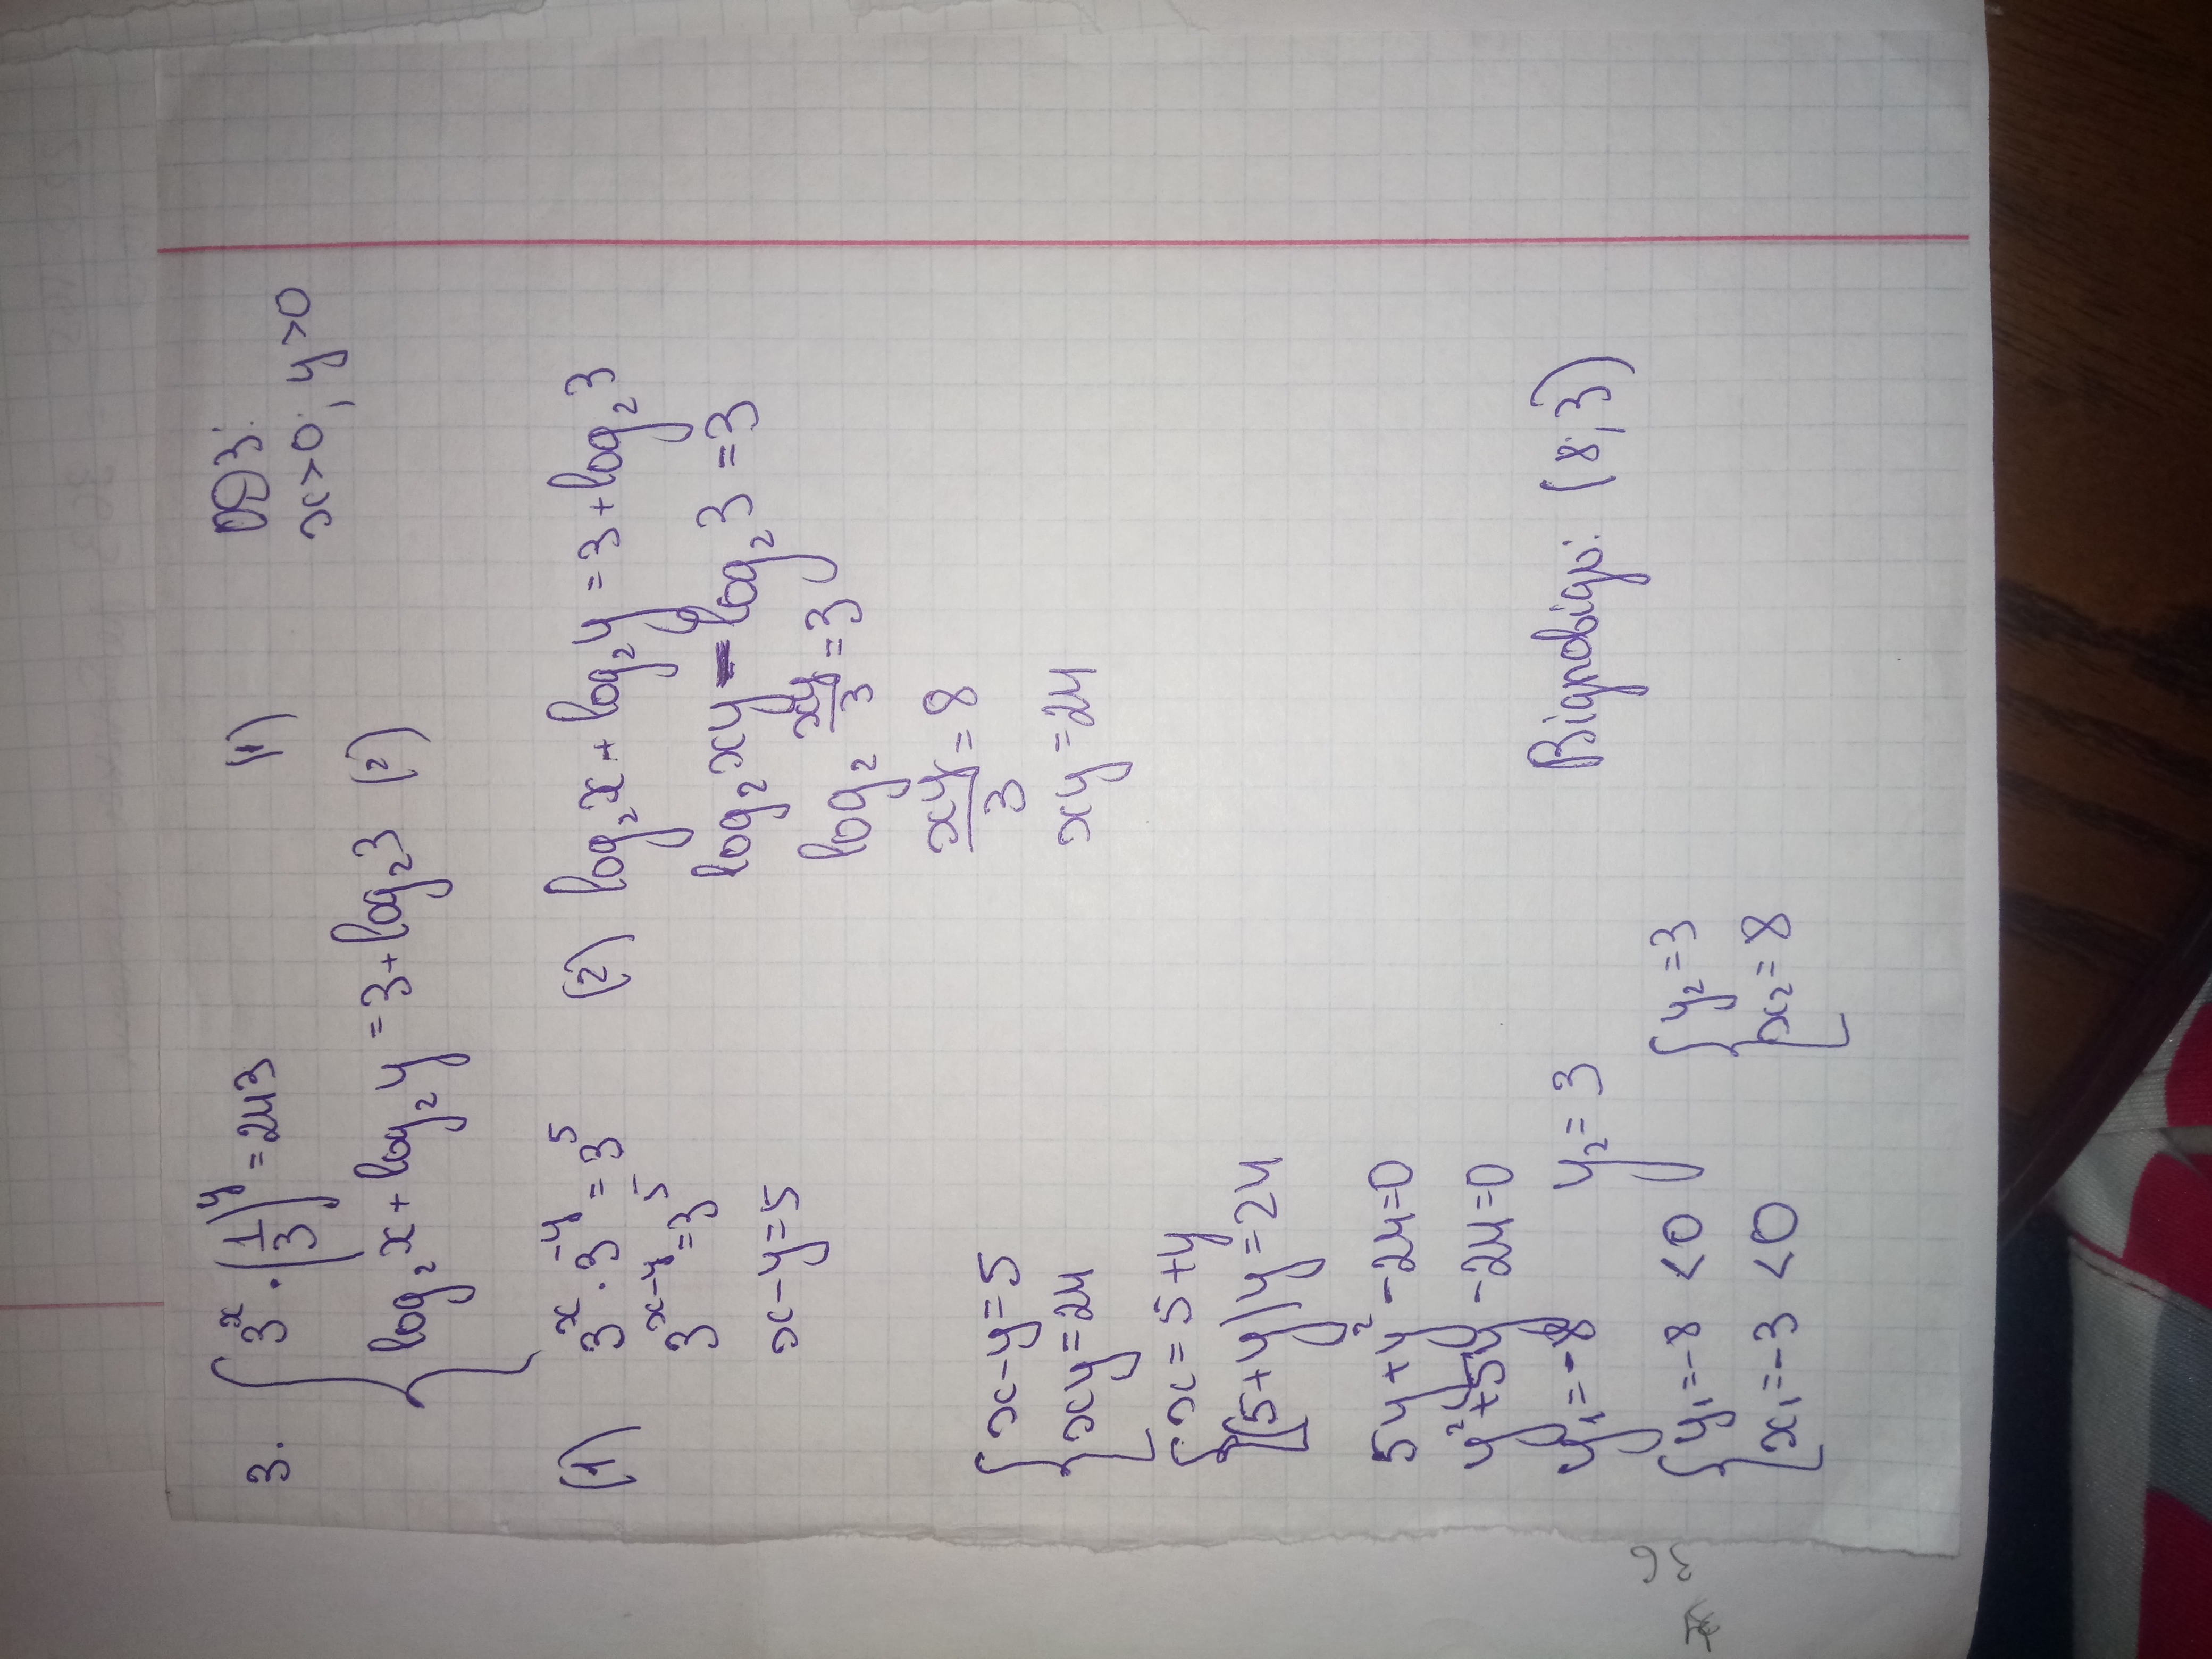 3. { 3^x · (1/3)^y = 243 (1) ОДЗ:
log₂x + log₂y = 3 + log₂3 (2) x>0; y>0
(1) 3^x · 3^(-y) = 3^5
3^(x-y) = 3^5
x-y=5
(2) log₂x + log₂y = 3 + log₂3
log₂xy - log₂3 = 3
log₂ xy/3 = 3
xy/3 = 8
xy = 24
{ x-y=5
xy=24
{ x=5+y
(5+y)y=24
5y+y²-24=0
y²+5y-24=0
y₁=-8 y₂=3
{ y₁=-8 <0
x₁=-3 <0
{ y₂=3
x₂=8
Відповідь: (8;3)
36